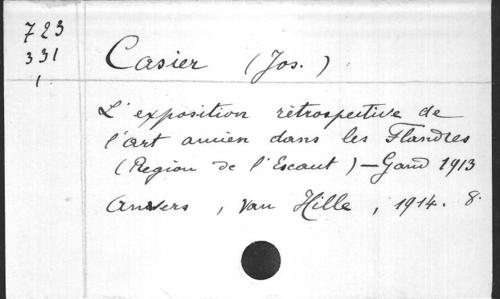 723
331
1
Casier (Jos.)
L'exposition rétrospective de
l'art ancien dans les Flandres
(Region de l'Escaut) — Gand 1913
Anvers, Van Hille, 1914. 8.